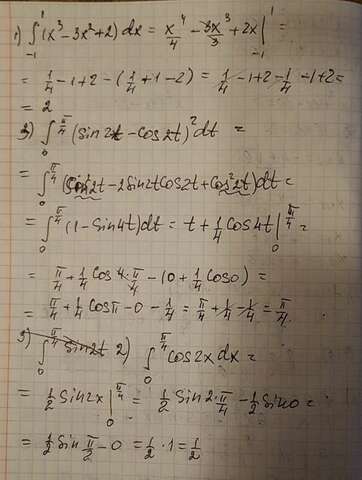 1) ∫₋₁¹ (x³ - 3x² + 2) dx = x⁴/4 - 3x³/3 + 2x |₋₁¹ =
= 1/4 - 1 + 2 - (1/4 + 1 - 2) = 1/4 - 1 + 2 - 1/4 - 1 + 2 =
= 2
3) ∫₀^(π/4) (sin 2t - cos 2t)² dt =
= ∫₀^(π/4) (sin² 2t - 2 sin 2t cos 2t + cos² 2t) dt =
= ∫₀^(π/4) (1 - sin 4t) dt = t + 1/4 cos 4t |₀^(π/4) =
= π/4 + 1/4 cos 4·π/4 - (0 + 1/4 cos 0) =
= π/4 + 1/4 cos π - 0 - 1/4 = π/4 + 1/4 - 1/4 = π/4.
3) ∫₀^(π/4) sin 2t 2) ∫₀^(π/4) cos 2x dx =
= 1/2 sin 2x |₀^(π/4) = 1/2 sin 2·π/4 - 1/2 sin 0 =
= 1/2 sin π/2 - 0 = 1/2 · 1 = 1/2